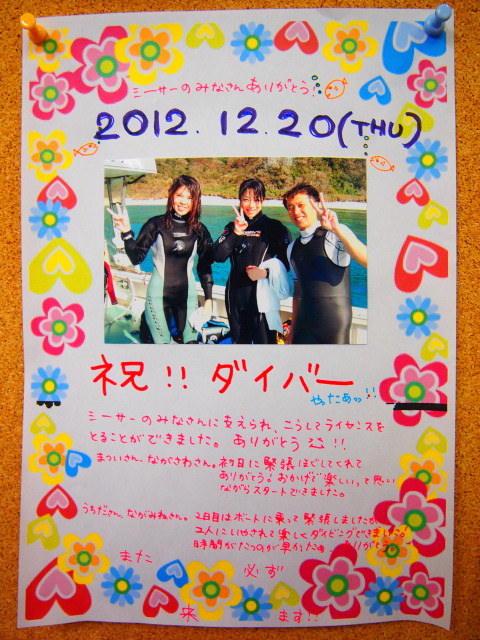 シーサーのみなさんありがとう!
2012.12.20(THU)
祝!! ダイバー
やったあッ!!
シーサーのみなさんに支えられ、こうしてライセンスを
とることができました。ありがとう !!
まついさん、ながさわさん。初日に緊張ほぐしてくれて
ありがとう!おかげで"楽しい"って思い
ながらスタートできました。
うちださん、ながみねさん。2日目はボートに乗って緊張しましたが、
2人にいやされて楽しくダイビングできました!
時間がたつのが早かったぁ ありがとう。
また 必ず
来 ます!!